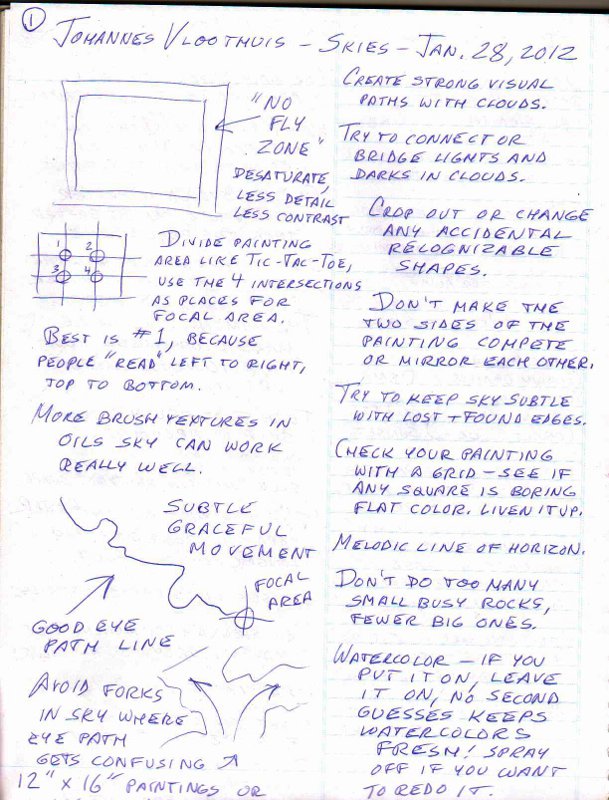 1
JOHANNES VLOOTHUIS - SKIES - JAN. 28, 2012
"NO
FLY
ZONE"
DESATURATE,
LESS DETAIL
LESS CONTRAST
1 2
3 4
DIVIDE PAINTING
AREA LIKE TIC-TAC-TOE,
USE THE 4 INTERSECTIONS
AS PLACES FOR
FOCAL AREA.
BEST IS #1, BECAUSE
PEOPLE "READ" LEFT TO RIGHT,
TOP TO BOTTOM.
MORE BRUSH TEXTURES IN
OILS SKY CAN WORK
REALLY WELL.
SUBTLE
GRACEFUL
MOVEMENT
FOCAL
AREA
GOOD EYE
PATH LINE
AVOID FORKS
IN SKY WHERE
EYE PATH
GETS CONFUSING
12" x 16" PAINTINGS OR
CREATE STRONG VISUAL
PATHS WITH CLOUDS.
TRY TO CONNECT OR
BRIDGE LIGHTS AND
DARKS IN CLOUDS.
CROP OUT OR CHANGE
ANY ACCIDENTAL
RECOGNIZABLE
SHAPES.
DON'T MAKE THE
TWO SIDES OF THE
PAINTING COMPETE
OR MIRROR EACH OTHER.
TRY TO KEEP SKY SUBTLE
WITH LOST + FOUND EDGES.
CHECK YOUR PAINTING
WITH A GRID - SEE IF
ANY SQUARE IS BORING
FLAT COLOR. LIVEN IT UP.
MELODIC LINE OF HORIZON.
DON'T DO TOO MANY
SMALL BUSY ROCKS,
FEWER BIG ONES.
WATERCOLOR - IF YOU
PUT IT ON, LEAVE
IT ON, NO SECOND
GUESSES KEEPS
WATERCOLORS
FRESH! SPRAY
OFF IF YOU WANT
TO REDO IT.